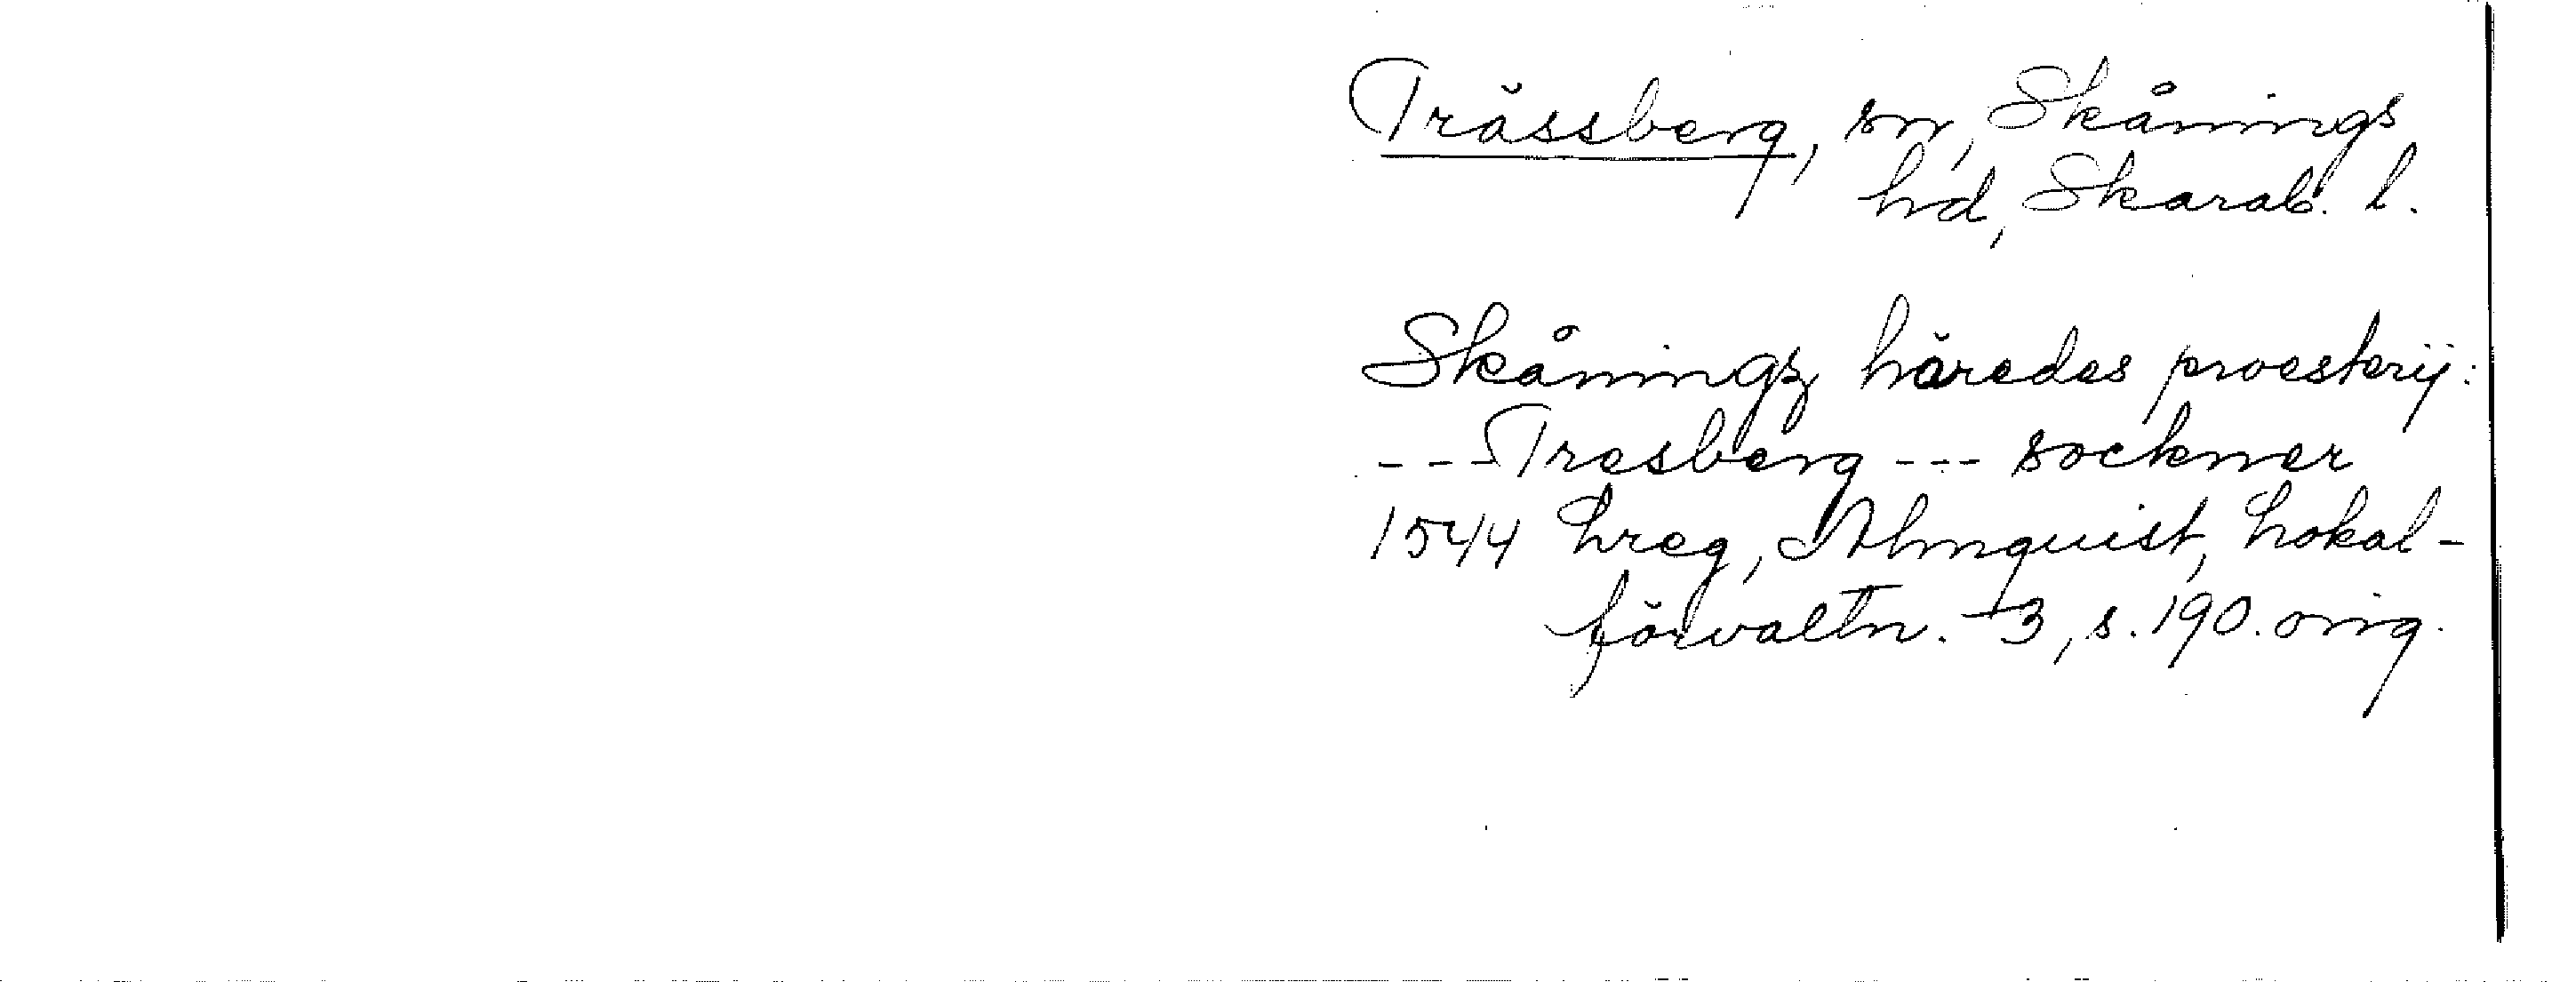 Trässberg, sn, Skånings
hd, Skarab. l.
Skåningz häredes proesterij:
---Tresberg --- sockner
1544 Lreg, Almquist, Lokal-
förvaltn. 3, s. 190. orig.